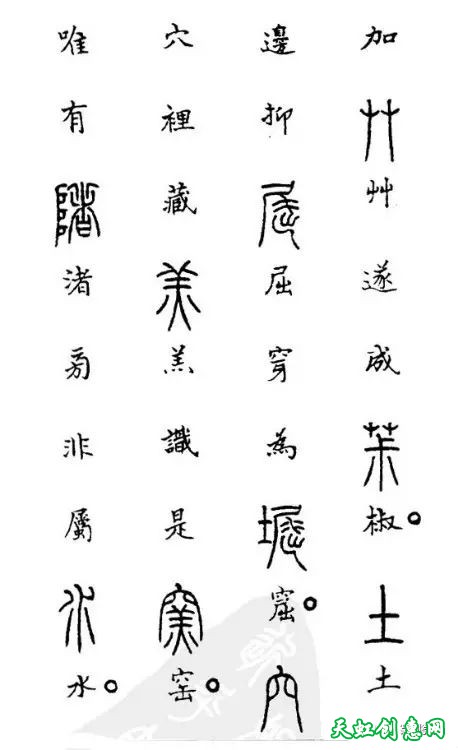 加艸艸遂成茮椒。土土
邊抑屈屈穿為堀窟。穴
穴裡藏羔羔識是窯窑。
唯有陼渚旁非屬水水。
天虹创意网